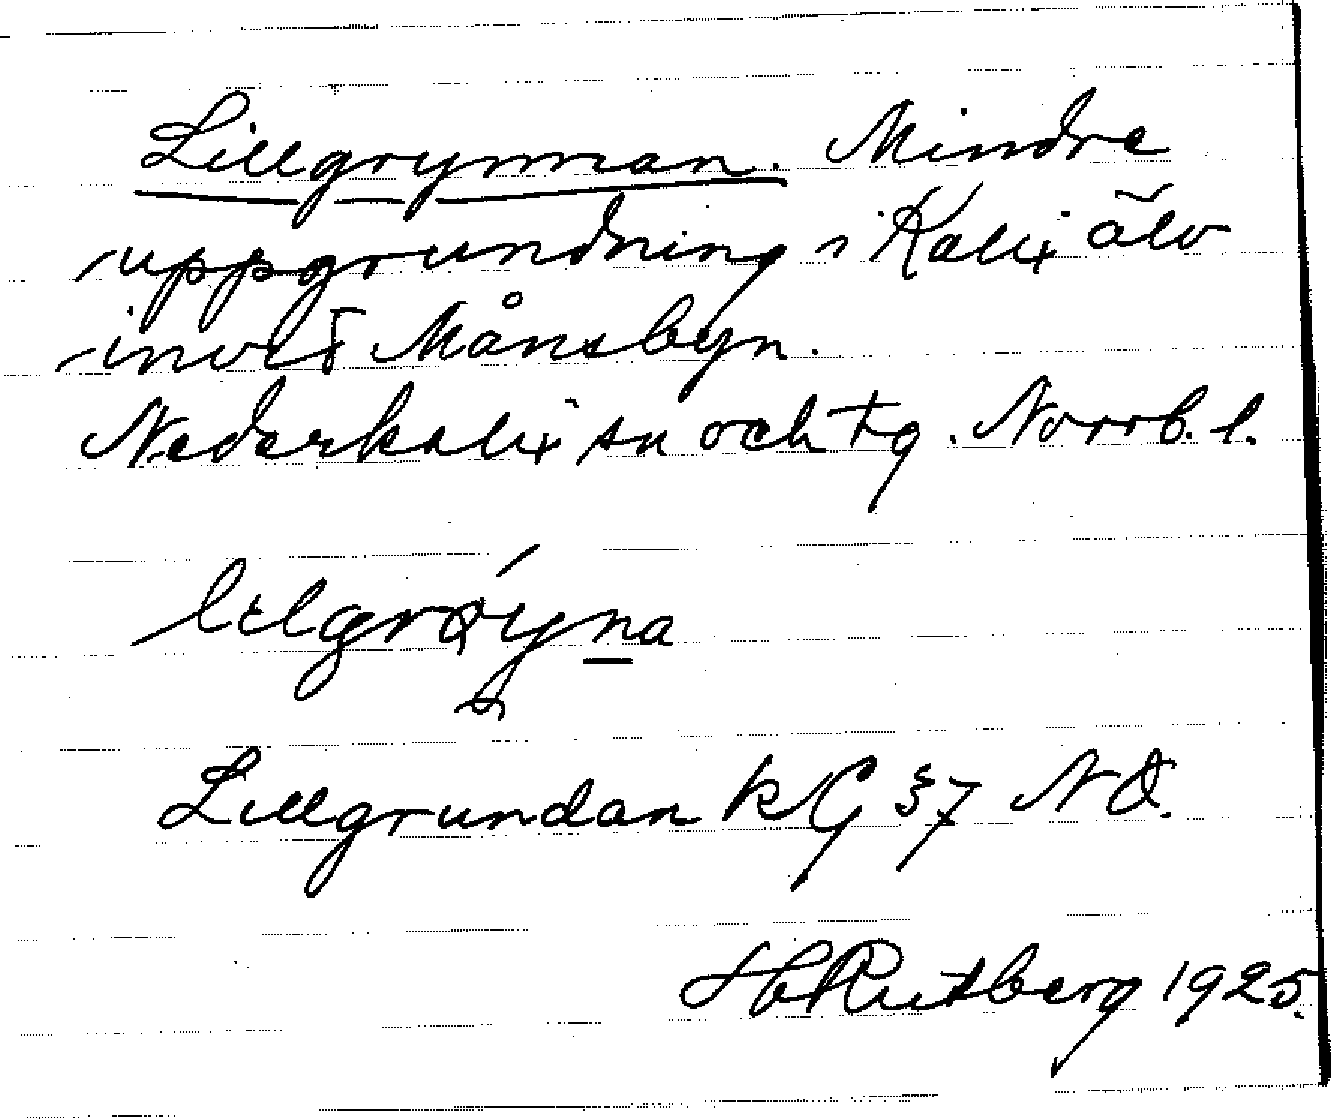 Lillgrynnan. Mindre
uppgrundning i Kalix älv
invid Månsbyn.
Nederkalix sn och tg. Norrb. l.
Lillgrundan KG §7 NÖ.
H Rutberg 1925.